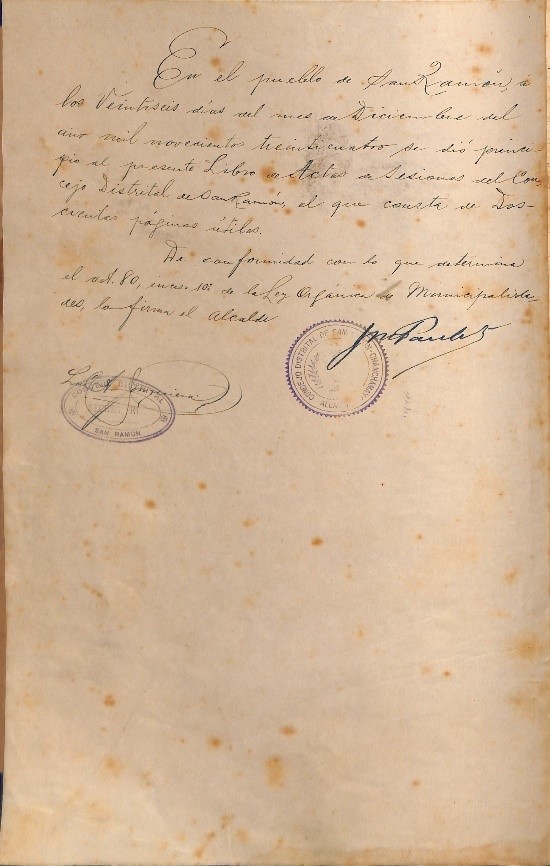 En el pueblo de San Ramón, a
los Veintiseis días del mes de Diciembre del
año mil novecientos treinticuatro, se dió princi-
pio al presente Libro de Actas de Sesiones del Con-
cejo Distrital de San Ramón, el que consta de Dos-
cientas páginas útiles.
De conformidad con lo que determina
el art. 80, inciso 10º de la Ley Orgánica de Municipalida-
des, lo firma el Alcalde
CONCEJO DISTRITAL DE SAN RAMON-CHANCHAMAYO
ALCALDIA
DISTRITAL
SAN RAMON